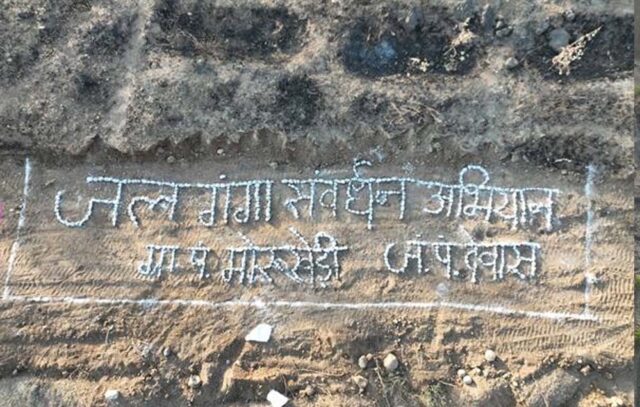 जल गंगा संवर्धन अभियान
ग्रा. पं. मोरूखेड़ी जं. पं. देवास